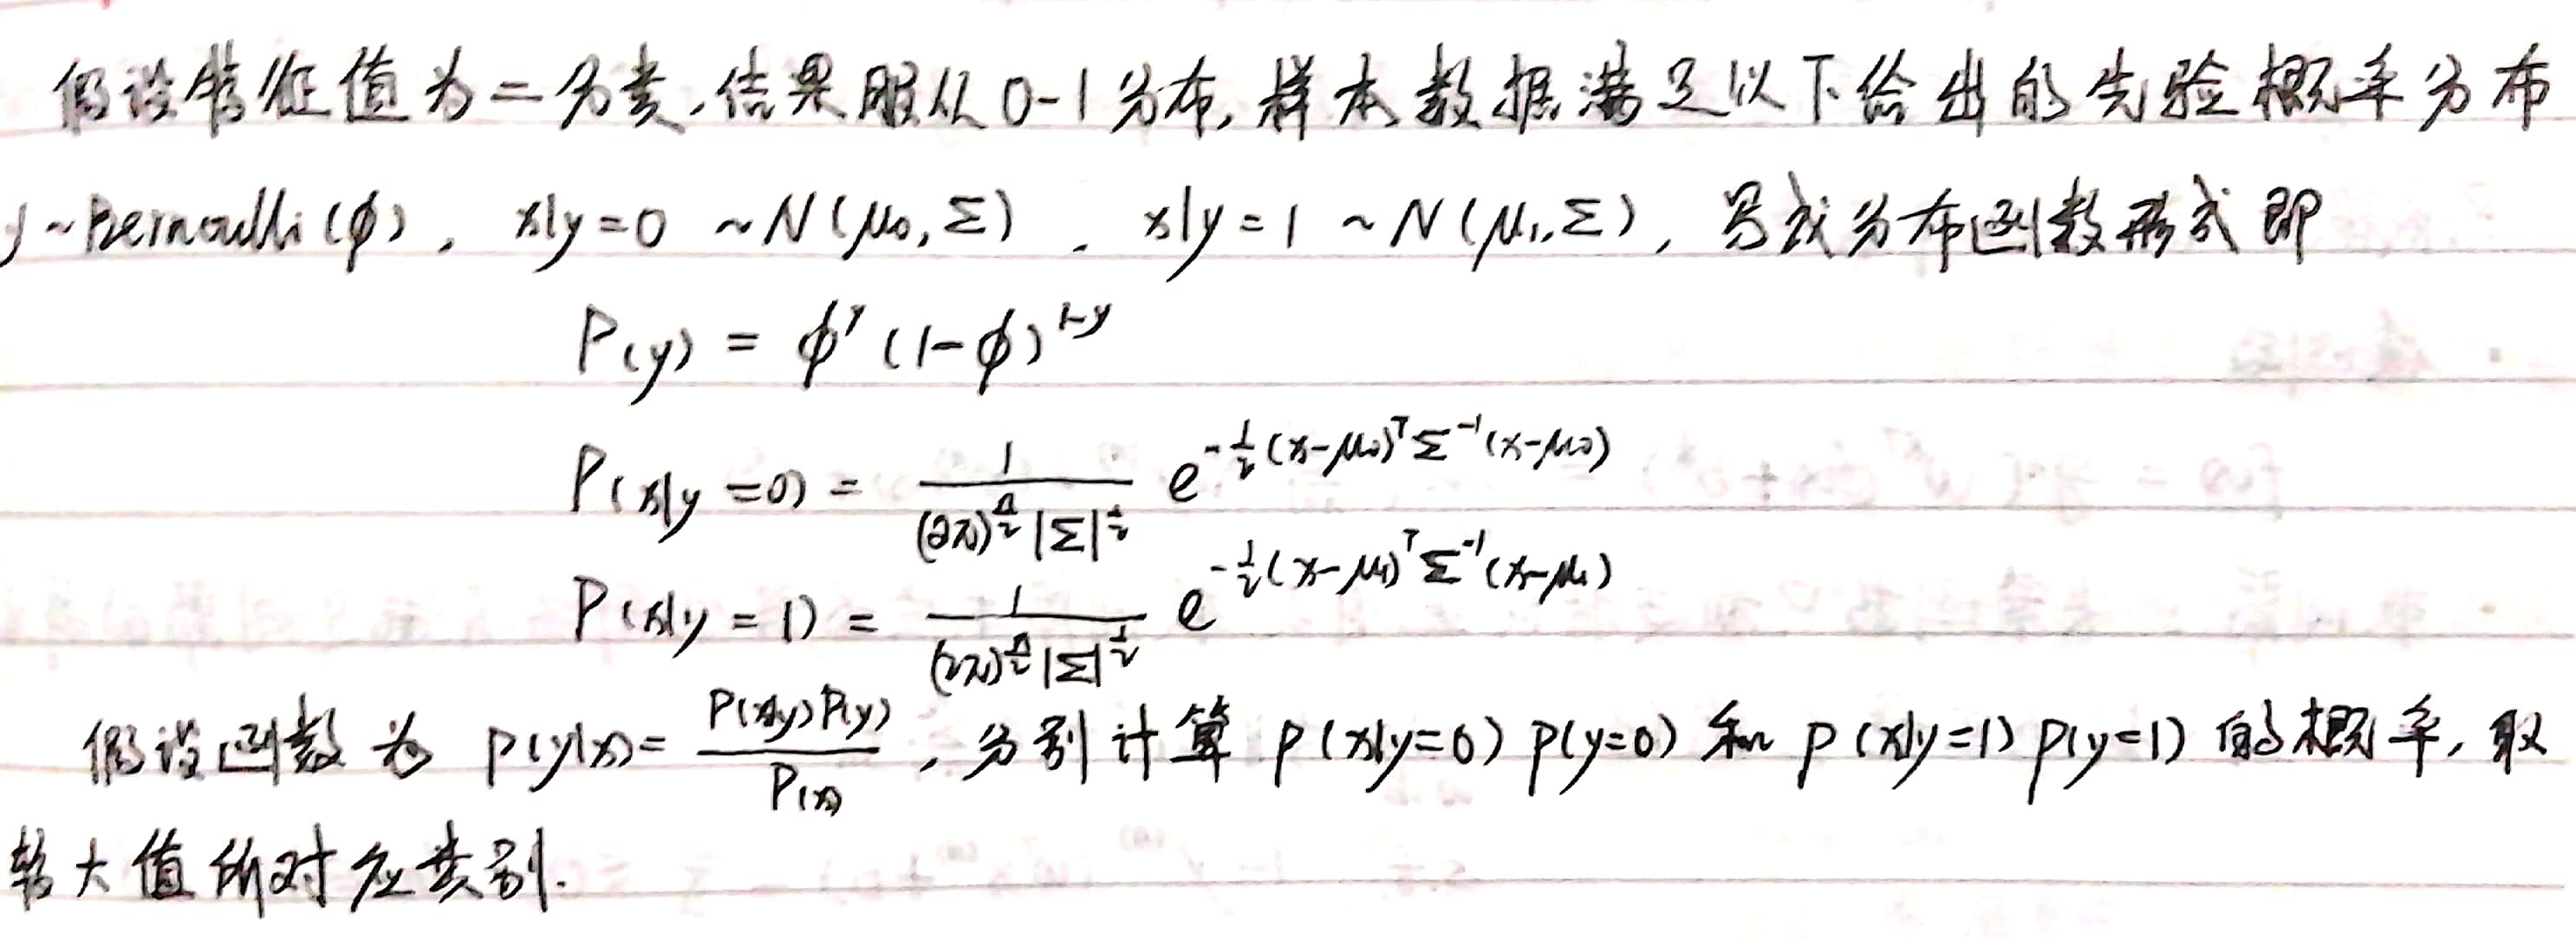 假设特征值为二分类,结果服从0-1分布,样本数据满足以下给出的先验概率分布
y~Bernoulli(ϕ), x|y=0 ~N(μ₀,Σ), x|y=1 ~N(μ₁,Σ), 写成分布函数形式即
P(y) = ϕ^y (1-ϕ)^{1-y}
P(x|y=0) = \frac{1}{(2π)^{\frac{n}{2}}|Σ|^{\frac{1}{2}}} e^{-\frac{1}{2}(x-μ₀)^T Σ^{-1}(x-μ₀)}
P(x|y=1) = \frac{1}{(2π)^{\frac{n}{2}}|Σ|^{\frac{1}{2}}} e^{-\frac{1}{2}(x-μ₁)^T Σ^{-1}(x-μ₁)}
假设函数为 p(y|x)= \frac{P(x|y)P(y)}{P(x)}, 分别计算 p(x|y=0)p(y=0) 和 p(x|y=1)p(y=1) 的概率,取
较大值所对应类别.